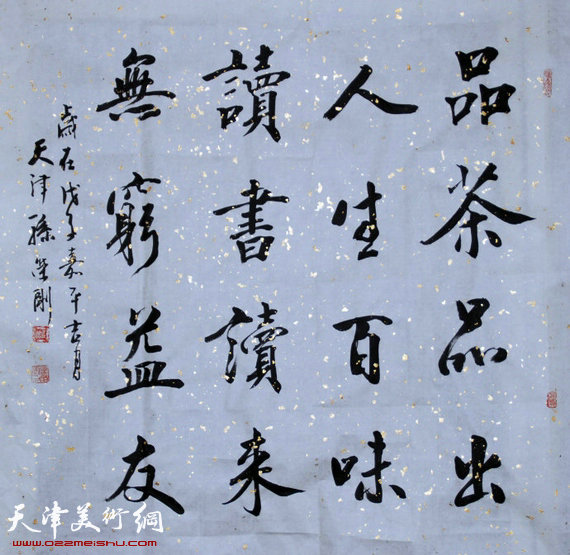 品茶品出
人生百味
讀書讀來
無窮益友
歲在戊子嘉平吉月
天津孫榮剛
天津美術網
www.022meishu.com